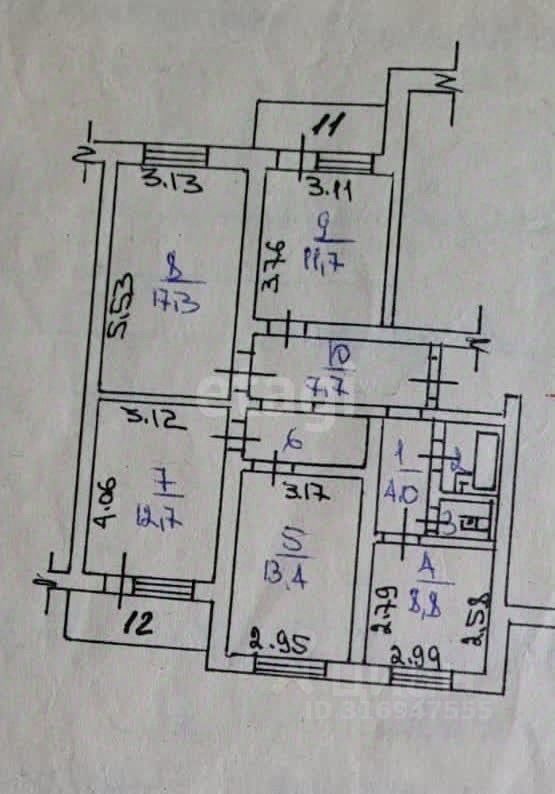 11
3.13
3.11
3.76
9
11,7
8
17,3
5.53
10
7.7
etagi
3.12
6
1
4.0
2
3
4.06
7
12,7
3.17
5
13,4
4
8,8
2.79
2.58
12
2.95
2.99
ID 316947555